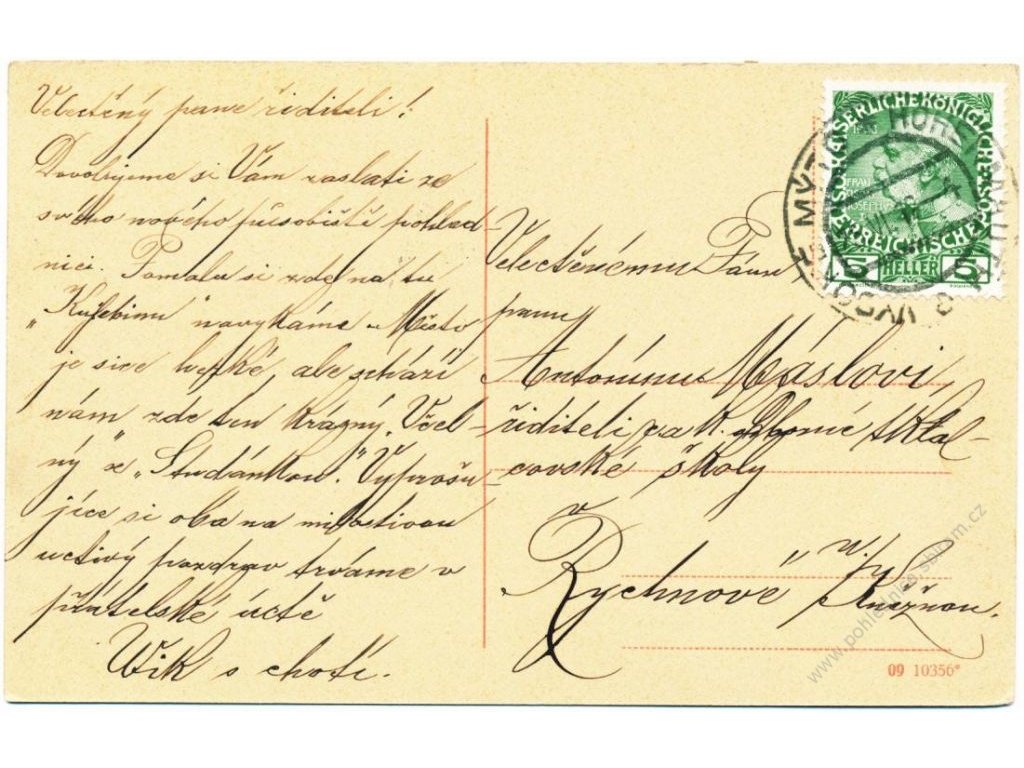 Velectěný pane řiditeli!
Dovolujeme si Vám zaslati ze
svého nového působiště pohled-
nici. Pomalu si zde na tu
navykáme. Místo
je sice hezké, ale schází
nám zde ten krásný "Včel-
ný" se "Studánkou". Vyprošu-
jíce si oba na milostivou
uctivý pozdrav trváme v
přátelské úctě
s chotí.
Velectěnému Pánu
panu
Antonínu Máslovi
řiditeli c. k. odborné tkal-
covské školy
v
Rychnově n./
Kněžnou.
KAISERLICHE KÖNIGLICHE
ÖSTERREICHISCHE
FRANZ
JOSEPH
5 HELLER 5
VYSOKÉ MÝTO
09 10356*
www.pohlednice-sbirkom.cz